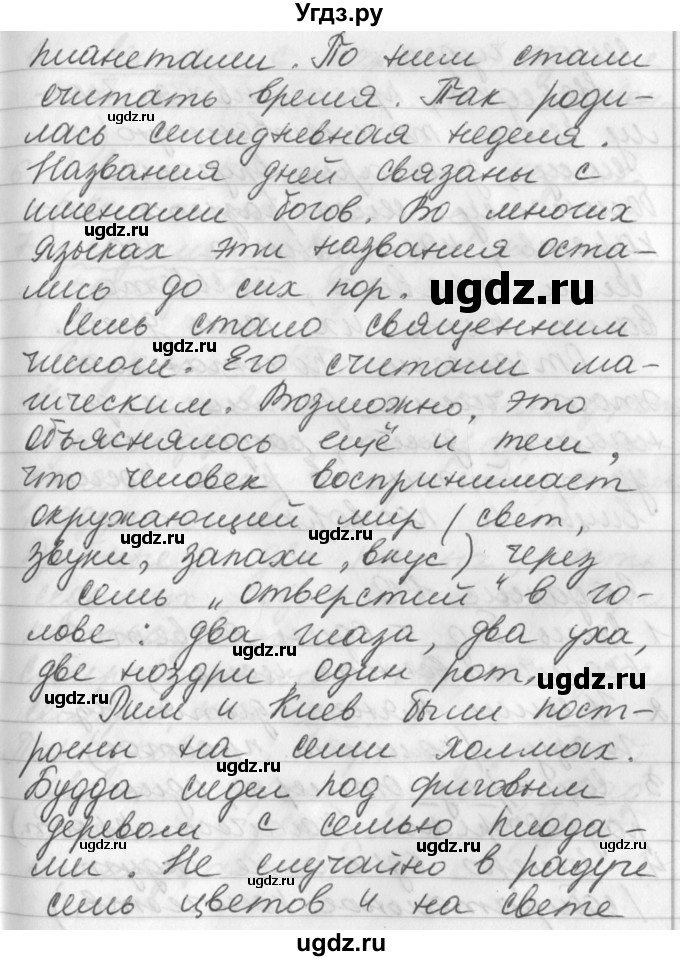 Угдз.ру
планетами. По ним стали
считать время. Так роди-
лась семидневная неделя.
Названия дней связаны с
именами богов. Во многих
языках эти названия оста-
лись до сих пор.
Семь стало священним
числом. Его считали ма-
гическим. Возможно, это
объяснялось ещё и тем,
что человек воспринимает
окружающий мир (свет,
звуки, запахи, вкус) через
семь „отверстий" в го-
лове: два глаза, два уха,
две ноздри, один рот.
Рим и Киев были пост-
роены на семи холмах.
Будда сидел под фиговым
деревом с семью плода-
ми. Не случайно в радуге
семь цветов и на свете
ugdz.ru
ugdz.ru
ugdz.ru
ugdz.ru
ugdz.ru
ugdz.ru
ugdz.ru
ugdz.ru
ugdz.ru
ugdz.ru
ugdz.ru
ugdz.ru
ugdz.ru
ugdz.ru